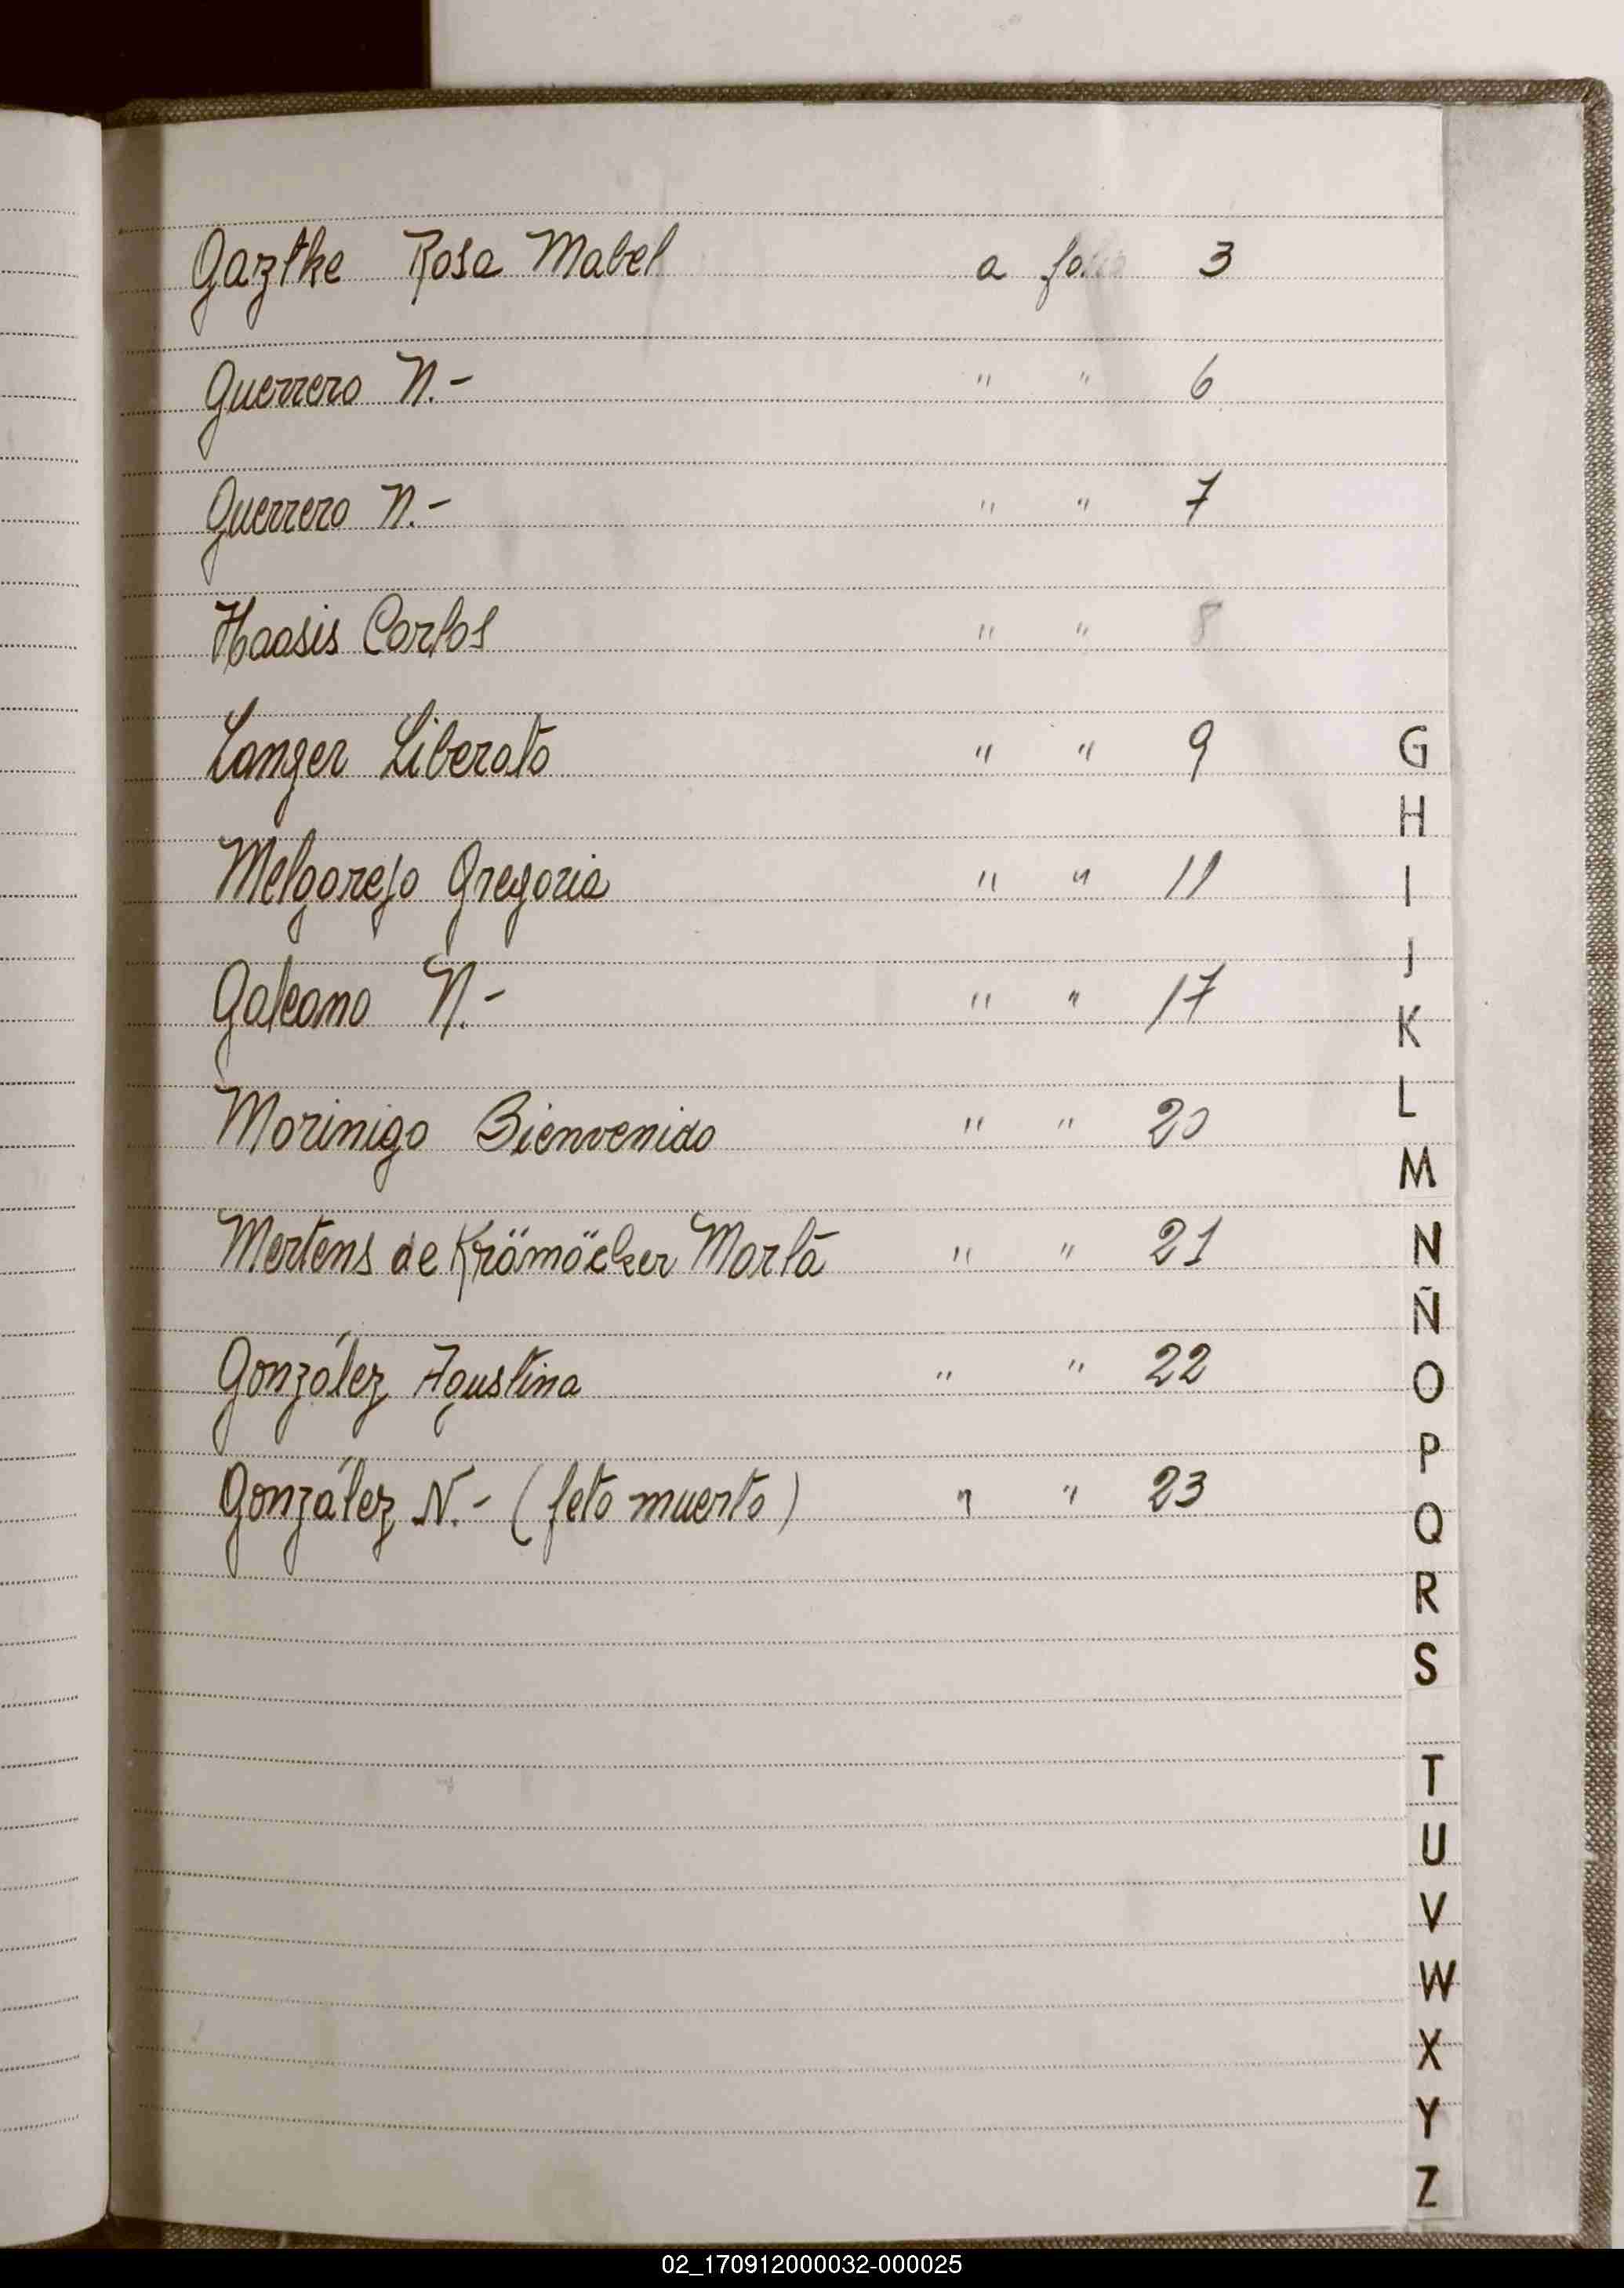 Gaztke Rosa Mabel a folio 3
Guerrero N.- " " 6
Guerrero N.- " " 7
Haasis Carlos " " 8
Langer Liberato " " 9
Melgarejo Gregoria " " 11
Galeano N.- " " 17
Morinigo Bienvenido " " 20
Mertens de Krömöcker Marta " " 21
González Agustina " " 22
González N.- (feto muerto) " " 23
G
H
I
J
K
L
M
N
Ñ
O
P
Q
R
S
T
U
V
W
X
Y
Z
02_170912000032-000025